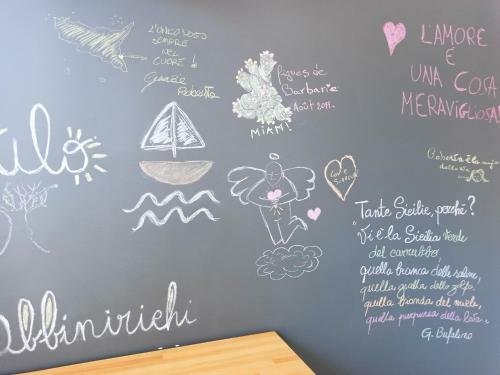 L'UNICO POSTO
SEMPRE
NEL
CUORE!
Grazie
Roberta
Figues de
Barbarie
Août 2011.
MIAM!
L'AMORE
È
UNA COSA
MERAVIGLIOSA!
Roberta è la
LOVE
SICILY
"Tante Sicilie, perché?
Vi è la Sicilia verde
del carrubbo,
quella bianca delle saline,
quella gialla dello zolfo,
quella bionda del miele,
quella purpurea della lava."
G. Bufalino
ulo
abbinirichi